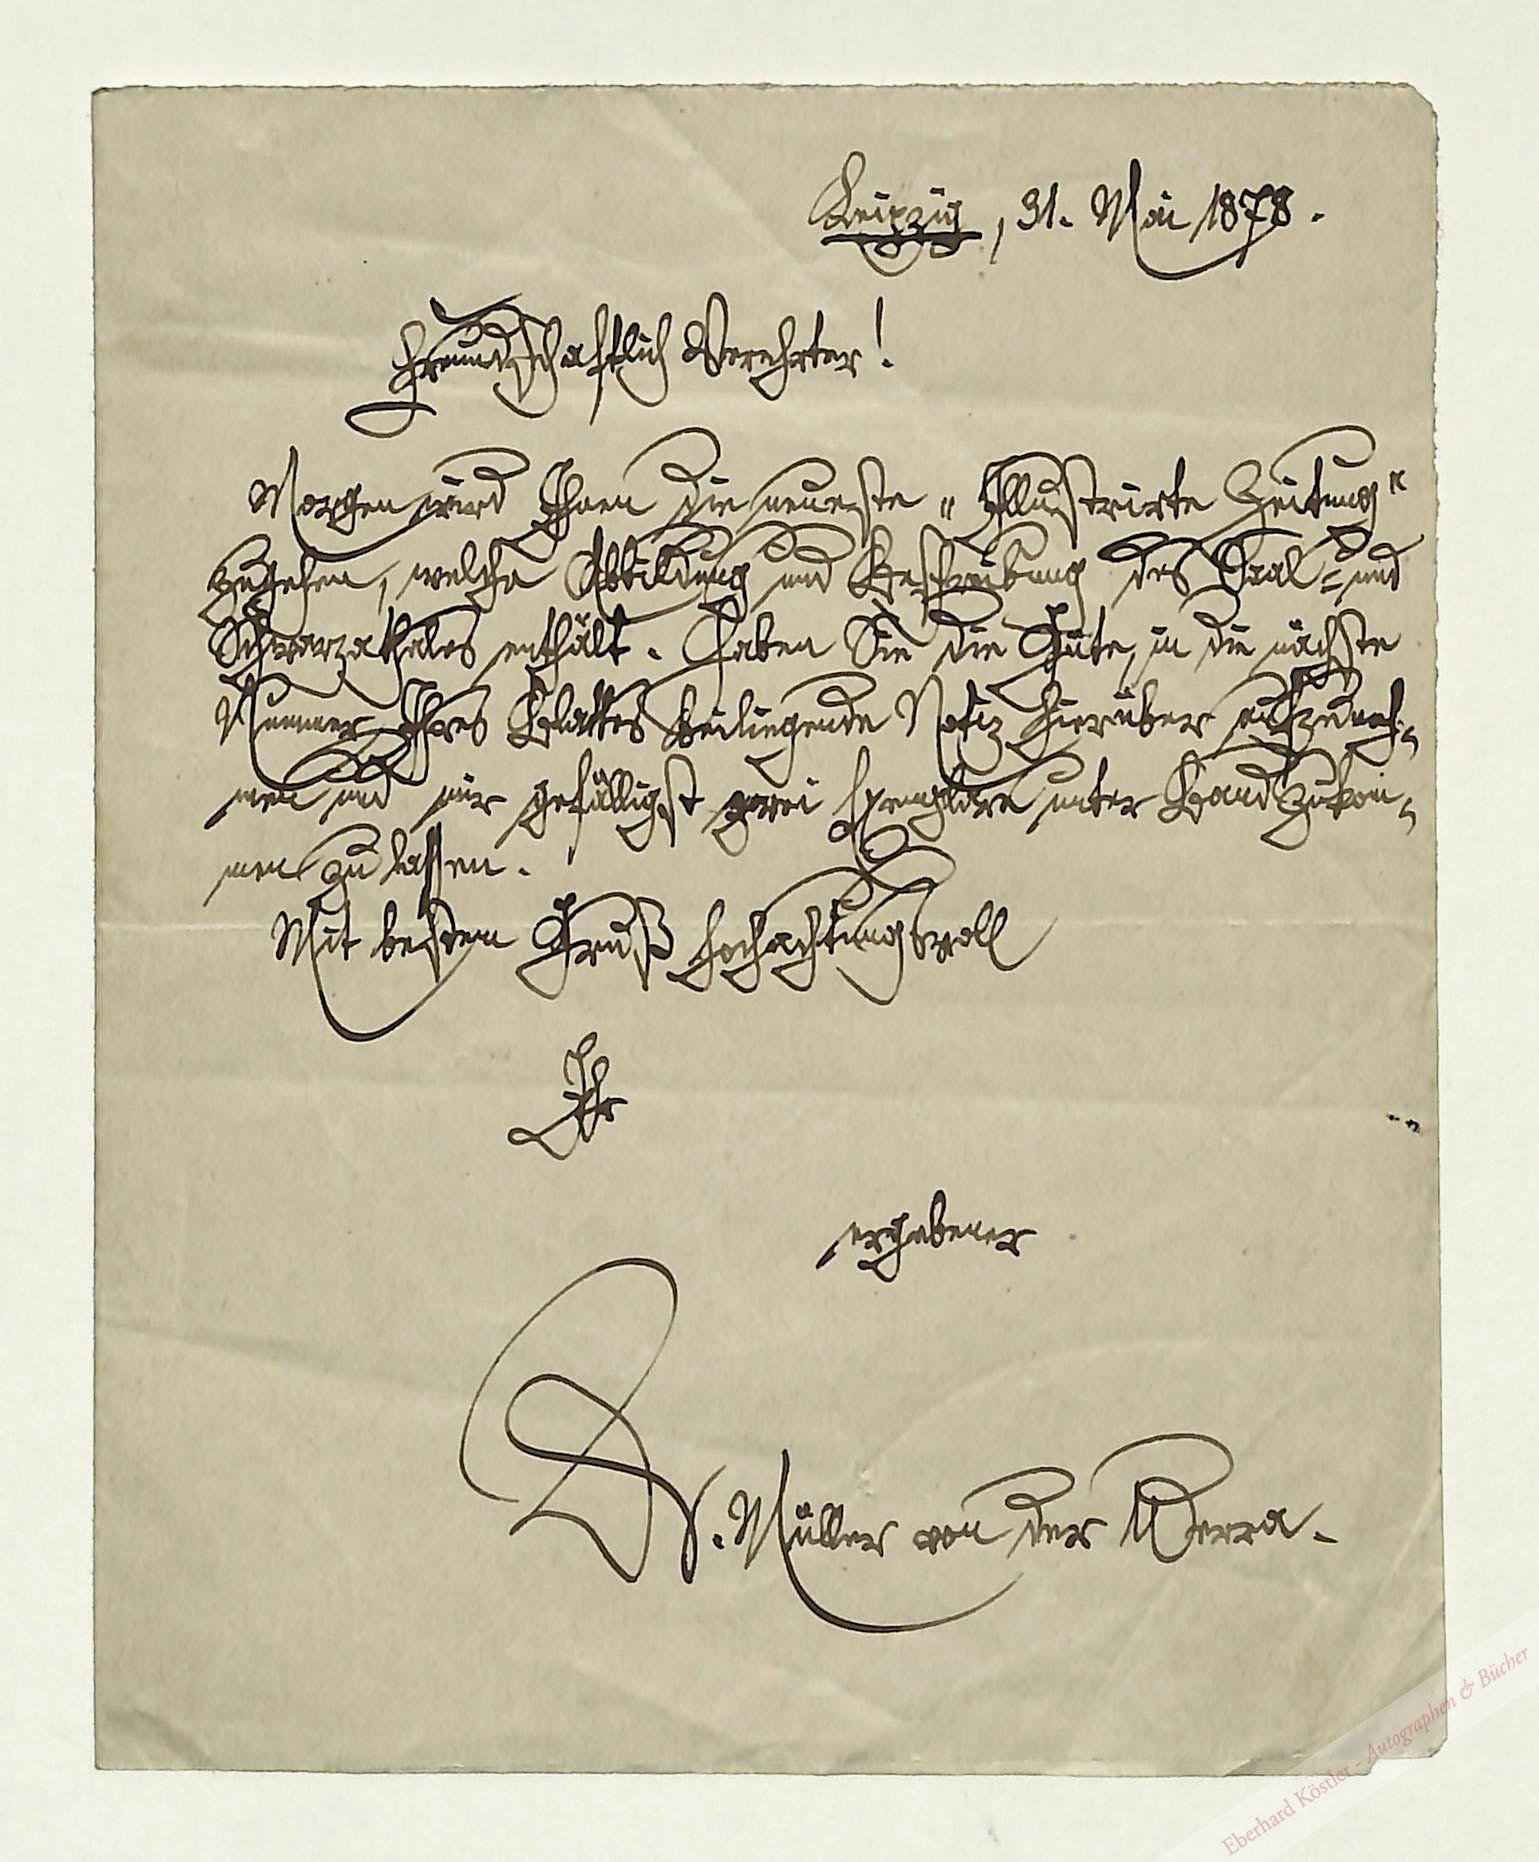 Leipzig, 31. Mai 1878.
Freundschaftlich Verehrter!
Morgen wird Ihnen die neueste „Illustrirte Zeitung"
zugehen, welche Abbildung und Beschreibung des Saal- und
Schwarzathales enthält. Haben Sie die Güte, in die nächste
Nummer Ihres Blattes beiliegende Notiz hierüber aufzuneh-
men und mir gefälligst zwei Exemplare unter Band zukom-
men zu lassen.
Mit bestem Gruß hochachtungsvoll
Ihr
ergebener
Fr. Müller von der Werra.
Eberhard Köstler - Autographen & Bücher